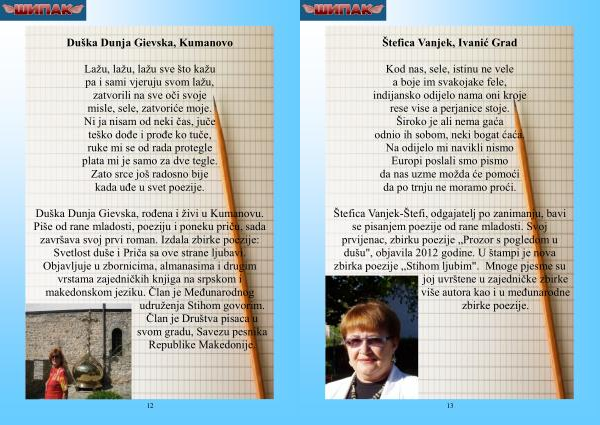 ШИПАК
Duška Dunja Gievska, Kumanovo
Lažu, lažu, lažu sve što kažu
pa i sami vjeruju svom lažu,
zatvorili na sve oči svoje
misle, sele, zatvoriće moje.
Ni ja nisam od neki čas, juče
teško dođe i prođe ko tuče,
ruke mi se od rada protegle
plata mi je samo za dve tegle.
Zato srce još radosno bije
kada uđe u svet poezije.
Duška Dunja Gievska, rođena i živi u Kumanovu.
Piše od rane mladosti, poeziju i poneku priču, sada
završava svoj prvi roman. Izdala zbirke poezije:
Svetlost duše i Priča sa ove strane ljubavi.
Objavljuje u zbornicima, almanasima i drugim
vrstama zajedničkih knjiga na srpskom i
makedonskom jeziku. Član je Međunarodnog
udruženja Stihom govorim.
Član je Društva pisaca u
svom gradu, Savezu pesnika
Republike Makedonije.
12
ШИПАК
Štefica Vanjek, Ivanić Grad
Kod nas, sele, istinu ne vele
a boje im svakojake fele,
indijansko odijelo nama oni kroje
rese vise a perjanice stoje.
Široko je ali nema gaća
odnio ih sobom, neki bogat ćaća.
Na odijelo mi navikli nismo
Europi poslali smo pismo
da nas uzme možda će pomoći
da po trnju ne moramo proći.
Štefica Vanjek-Štefi, odgajatelj po zanimanju, bavi
se pisanjem poezije od rane mladosti. Svoj
prvijenac, zbirku poezije ,,Prozor s pogledom u
dušu", objavila 2012 godine. U štampi je nova
zbirka poezije ,,Stihom ljubim". Mnoge pjesme su
joj uvrštene u zajedničke zbirke
više autora kao i u međunarodne
zbirke poezije.
13